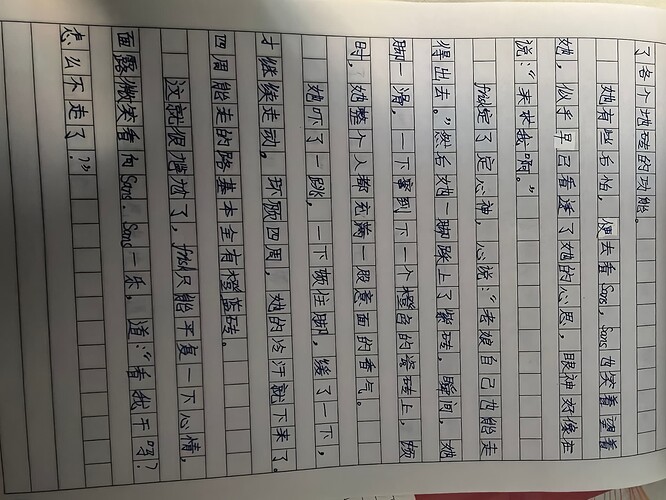 了各个地砖的功能。
她有些后怕，便去看Sans，Sans也笑着望着
她，似乎早已看透了她的心思，眼神好像在
说：“来求我啊。”
frisk定了定心神，心说：“老娘自己也能走
得出去。”然后她一脚踩上了紫砖，瞬间，她
脚一滑，一下窜到下一个橙色的瓷砖上，顿
时，她整个人都充满一股意面的香气。
她吓了一跳，一下顿住脚，缓了一下，
才继续走动。环顾四周，她的冷汗就下来了。
四周能走的路基本全有橙蓝砖。
这就很尴尬了，frisk只能平复一下心情，
面露微笑看向Sans.Sans一乐，道：“看我干吗？
怎么不走了？”